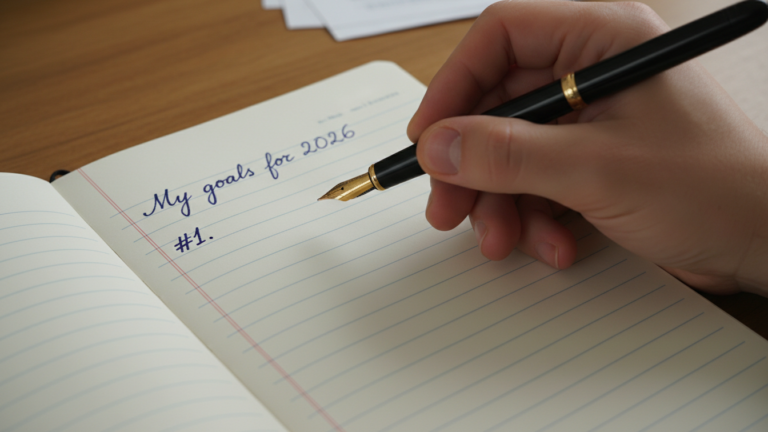 My goals for 2026
#1.